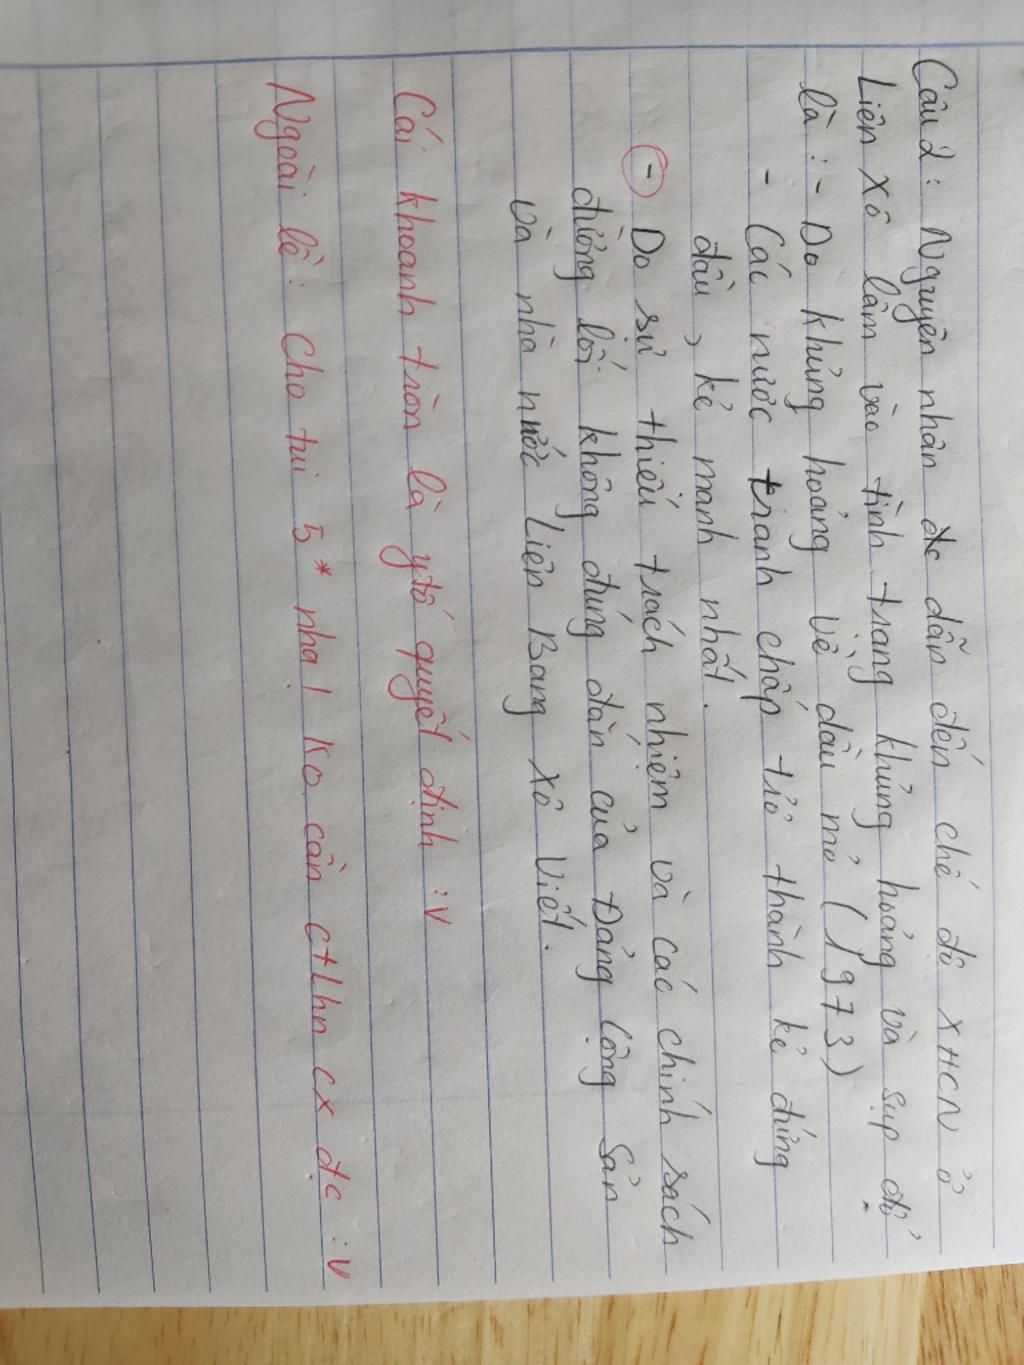 Câu 2: Nguyên nhân đc dẫn đến chế độ XHCN ở
Liên Xô lâm vào tình trạng khủng hoảng và sụp đổ
là : - Do khủng hoảng về dầu mỏ (1973)
- Các nước tranh chấp trở thành kẻ đứng
đầu, kẻ mạnh nhất.
- Do sự thiếu trách nhiệm và các chính sách
đường lối không đúng đắn của Đảng Cộng Sản
và nhà nước Liên Bang Xô Viết.
Cái khoanh tròn là ytố quyết định :v
Ngoài lề: cho tui 5* nha! Ko cần ctlhn cx đc :v